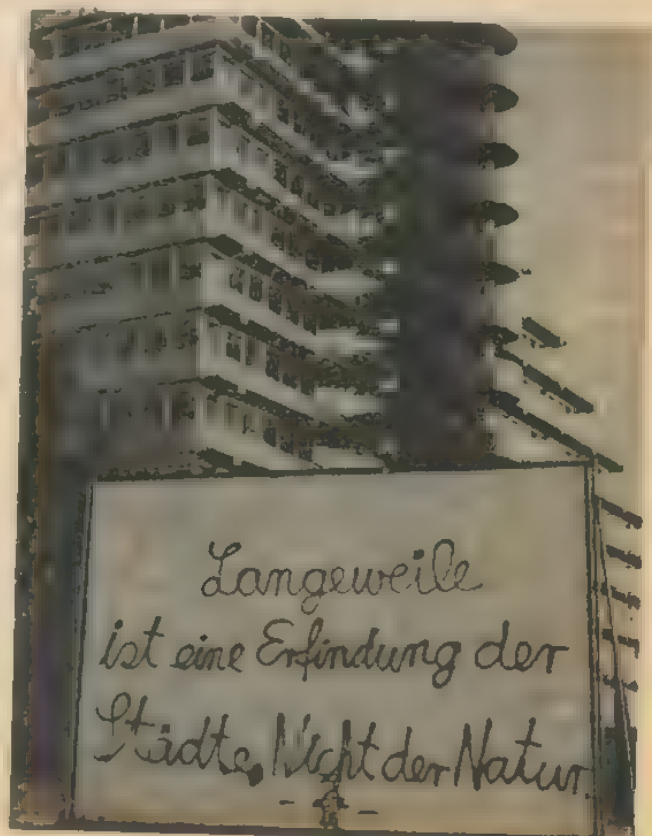 Langeweile
ist eine Erfindung der
Städte, Nicht der Natur.